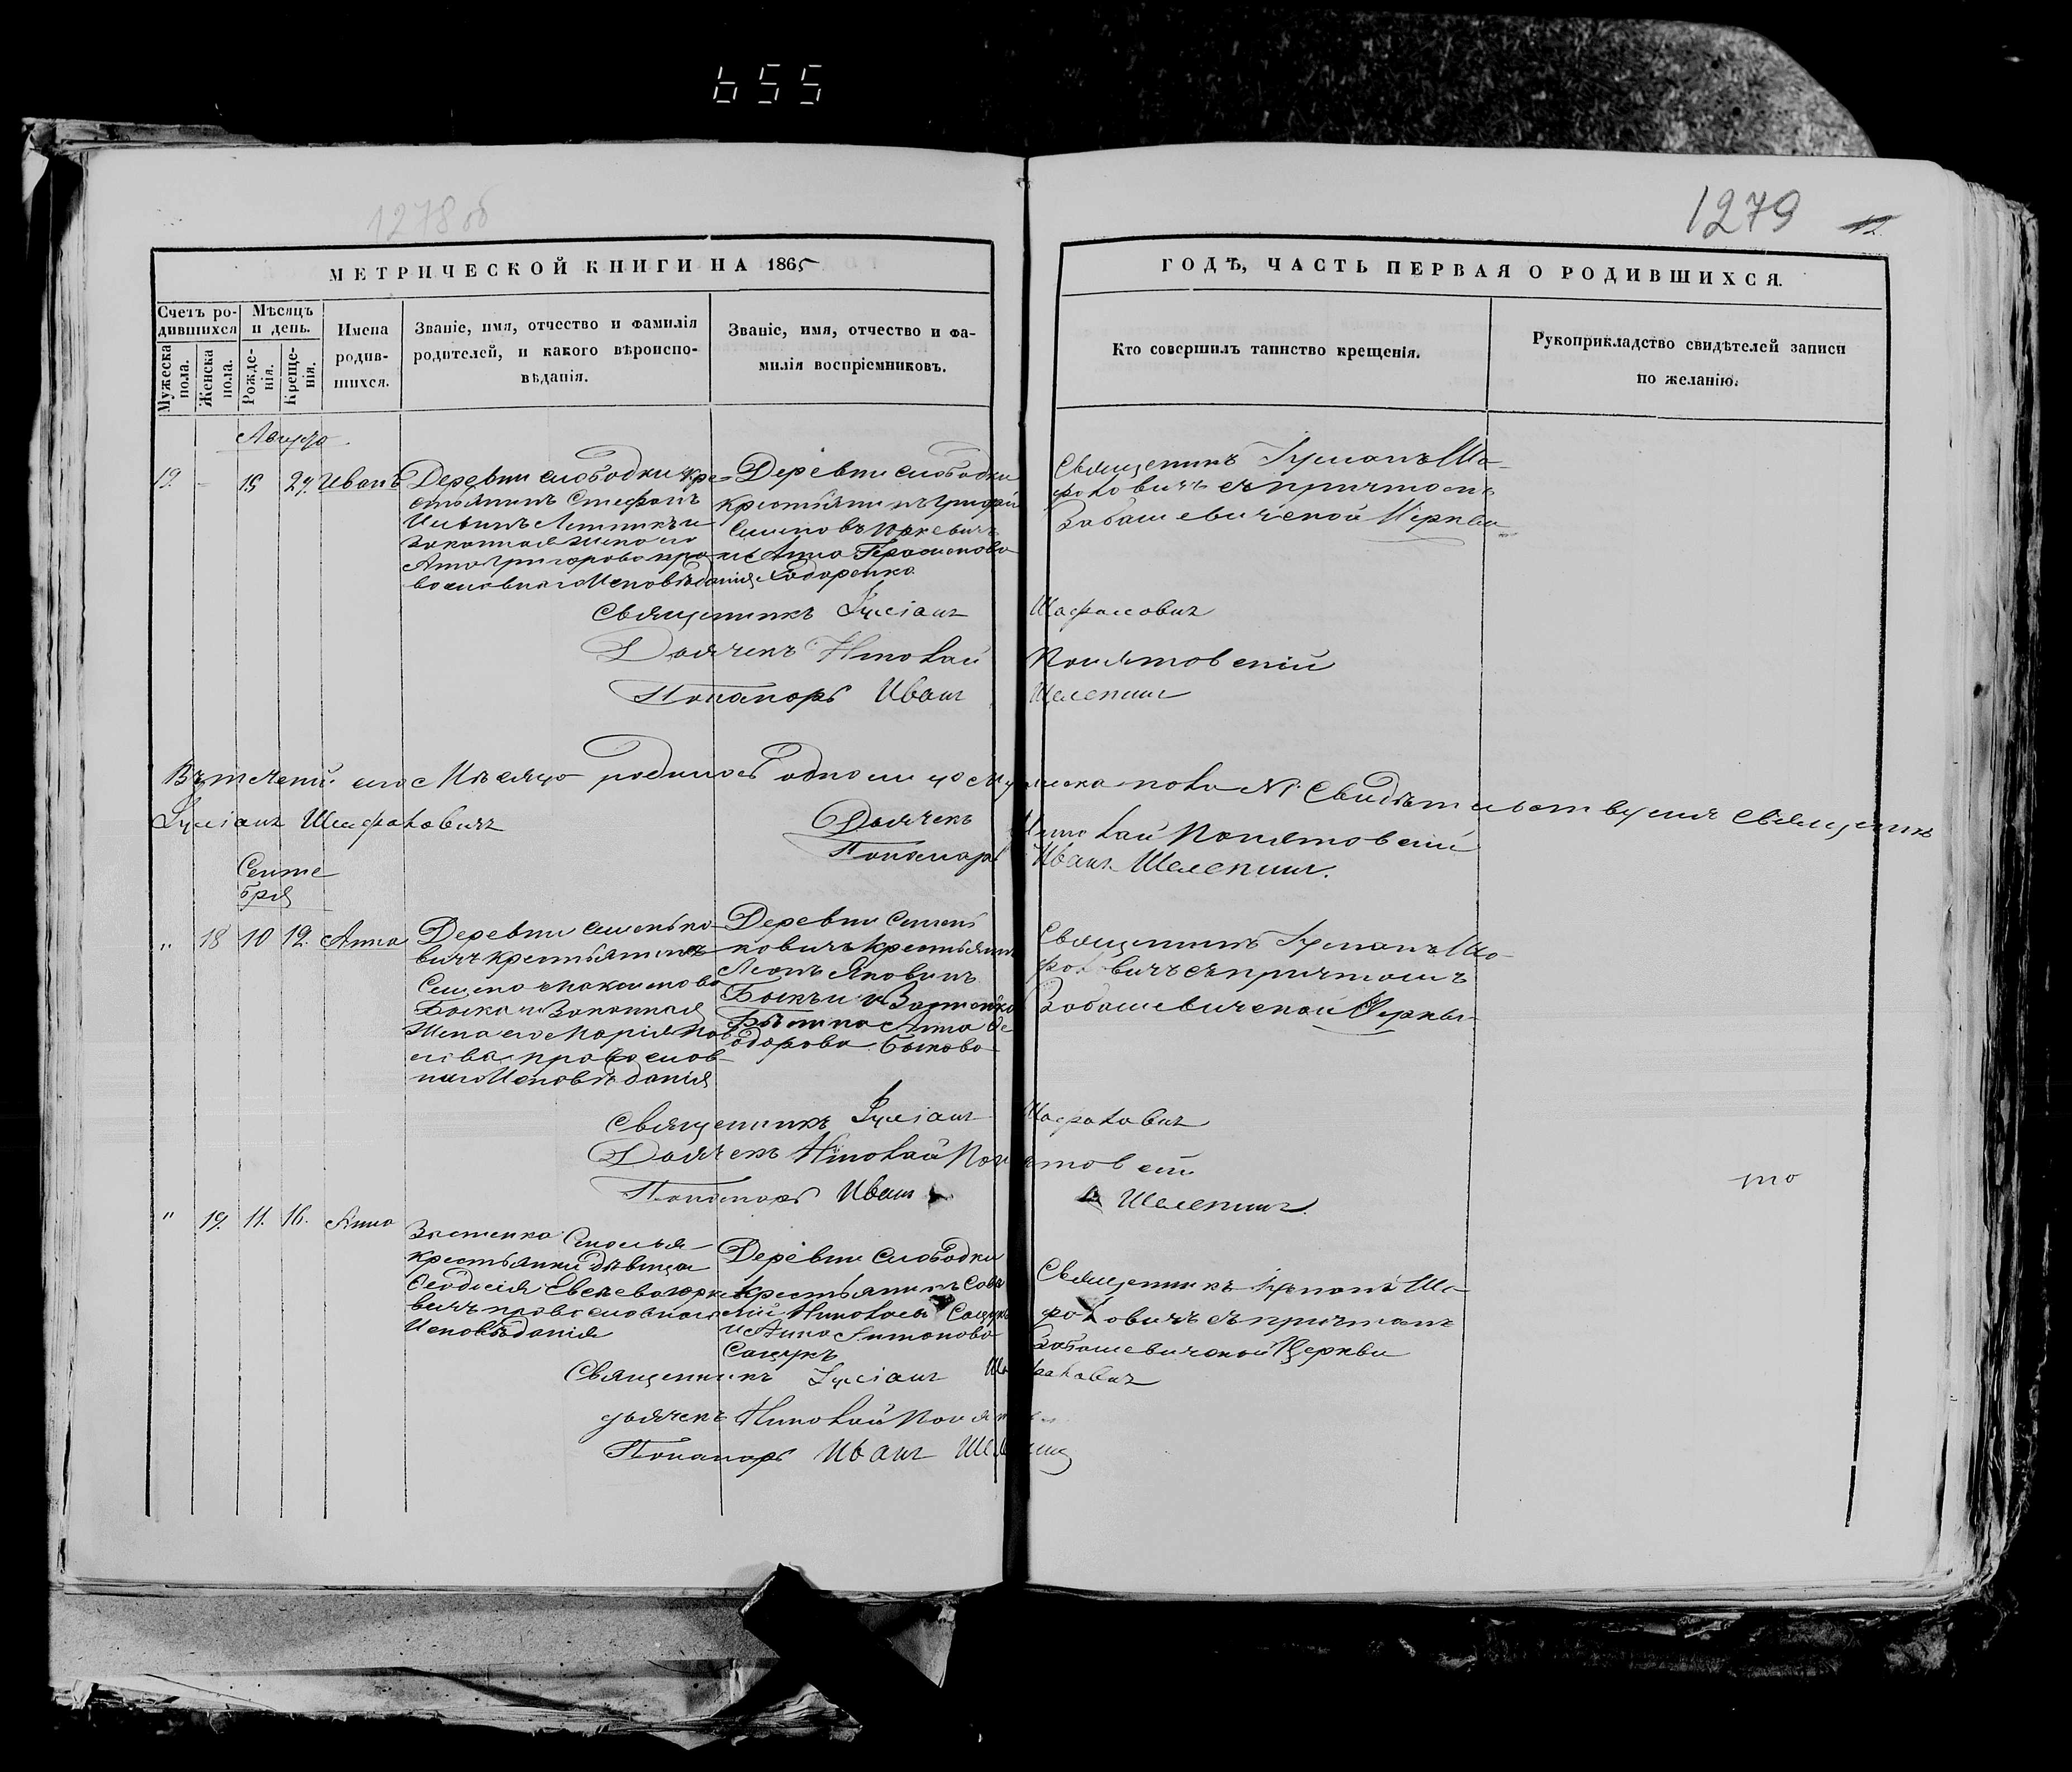 655
1278 об
1279
12
МЕТРИЧЕСКОЙ КНИГИ НА 1865
ГОДѢ, ЧАСТЬ ПЕРВАЯ О РОДИВШИХСЯ.
Счетъ ро-
дившихся
Мужеска
пола.
Женска
пола.
Мѣсяцъ
и день.
Рожде-
нія.
Креще-
нія.
Имена
родив-
шихся.
Званіе, имя, отчество и фамилія
родителей, и какого вѣроиспо-
вѣданія.
Званіе, имя, отчество и фа-
милія воспріемниковъ.
Кто совершилъ таинство крещенія.
Рукоприкладство свидѣтелей записи
по желанію.
Августа
19. - 15 29. Иванъ
Деревни слободки кре-
стьянинъ Стефанъ
Ильинъ
законная жена его
Анна Григорова пра
вославнаго Исповѣданія
Деревни слободки
крестьянинъ Григорій
Семеновъ Юркевичъ
и Анна Герасимова
Ходоренко
Священникъ Іуліанъ Ша-
фаловичъ съ причтомъ
Забашевичской Церкви
Священникъ Іуліанъ Шафаловичъ
Дьячекъ Николай Понятовскій
Пономарь Иванъ Шелепинъ
Въ теченіи сего Мѣсяца родилось одно лицо Мужеска пола № Свидѣтельствуемъ Священникъ
Іуліанъ Шафаловичъ
Дьячекъ Николай Понятовскій
Пономарь Иванъ Шелепинъ.
Сентя
бря
" 18 10 12. Анна
Деревни Сименько-
вичъ крестьянинъ
Семено Макимово
Быко и Законная
Жена его Марія Пав
лова православ
наго Исповѣданія
Деревни Симень
ковичъ Крестьянинъ
Леонъ Яковинъ
Быкъ и
Анна Ѳе
одорова Быкова
Священникъ Іуліанъ Ша-
фаловичъ съ причтомъ
Забашевичской Церкви
Священникъ Іуліанъ Шафаловичъ
Дьячекъ Николай Понятовскій
Пономарь Иванъ Шелепинъ.
" 19. 11. 16. Анна
Застенка
крестьянки дѣвица
Ѳеодосія Евсева Юрке
вичъ православнаго
Исповѣданія
Деревни Слободки
Крестьянинъ Сава
Николаевъ Сацукъ
и Анна Антонова
Сацукъ
Священникъ Іуліанъ Ша-
фаловичъ съ причтомъ
Забашевичской Церкви
Священникъ Іуліанъ Шафаловичъ
дьячекъ Николай Понятов
Пономарь Иванъ Шелепинъ